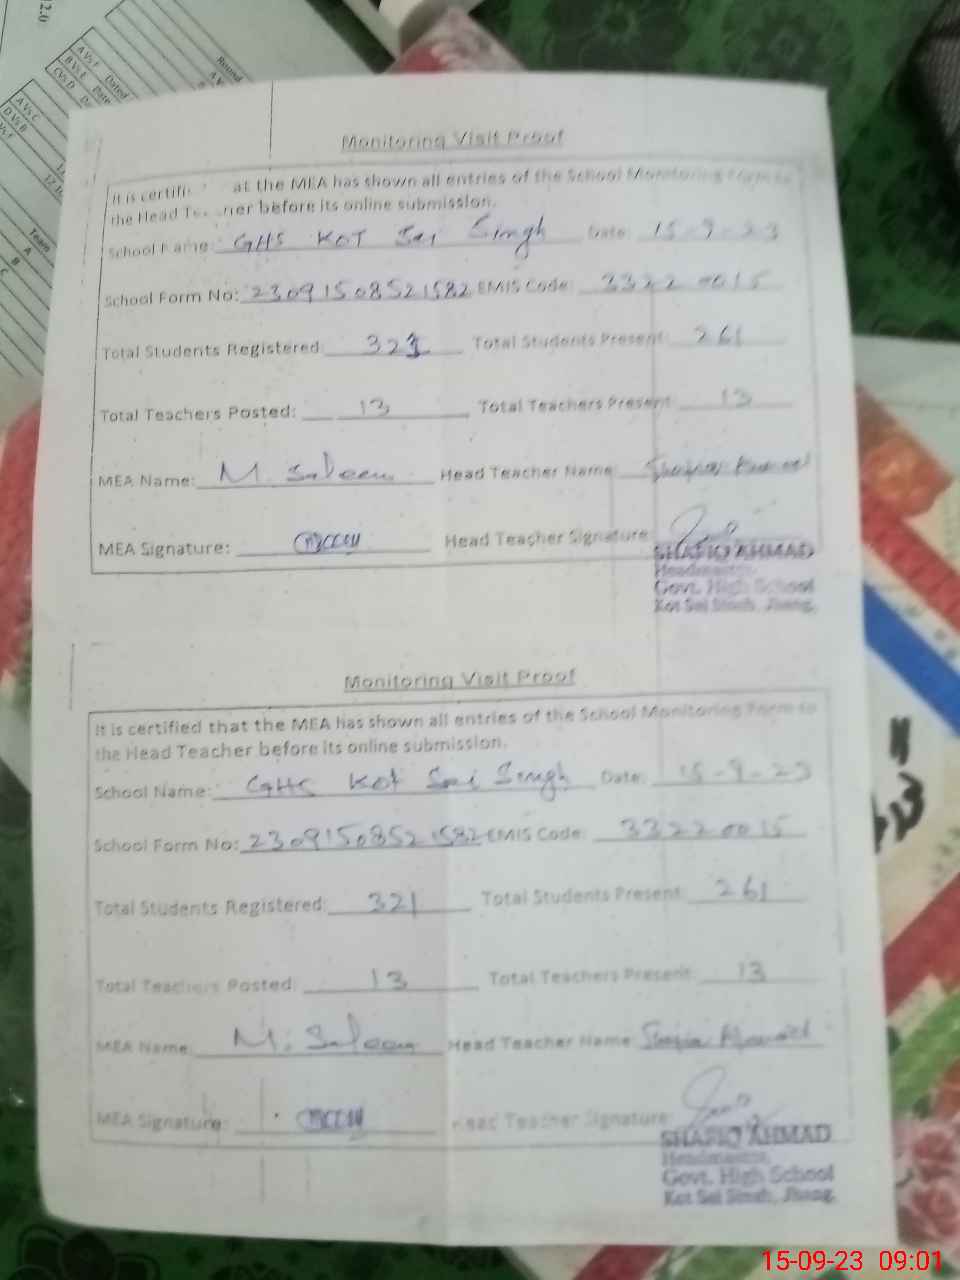 12.0
Round
A Vs F Dated
B Vs E Date
CVs D Da
A Vs C
D Vs B
Team
A
B
C
Monitoring Visit Proof
It is certifi at the MEA has shown all entries of the School Monitoring Form to
the Head Teacher before its online submission.
School Name: GHS KOT Sai Singh Date: 15-9-23
School Form No: 23091508521582 EMIS Code: 33220015
Total Students Registered: 321 Total Students Present: 261
Total Teachers Posted: 13 Total Teachers Present: 13
MEA Name: M. Saleem Head Teacher Name:
MEA Signature: Head Teacher Signature:
SHAFIQ AHMAD
Headmaster,
Govt. High School
Kot Sai Singh, Jhang.
Monitoring Visit Proof
It is certified that the MEA has shown all entries of the School Monitoring Form to
the Head Teacher before its online submission.
School Name: GHS Kot Sai Singh Date: 15-9-23
School Form No: 23091508521582 EMIS Code: 33220015
Total Students Registered: 321 Total Students Present: 261
Total Teachers Posted: 13 Total Teachers Present: 13
MEA Name: M. Saleem Head Teacher Name:
MEA Signature: Head Teacher Signature:
SHAFIQ AHMAD
Headmaster,
Govt. High School
Kot Sai Singh, Jhang.
15-09-23 09:01